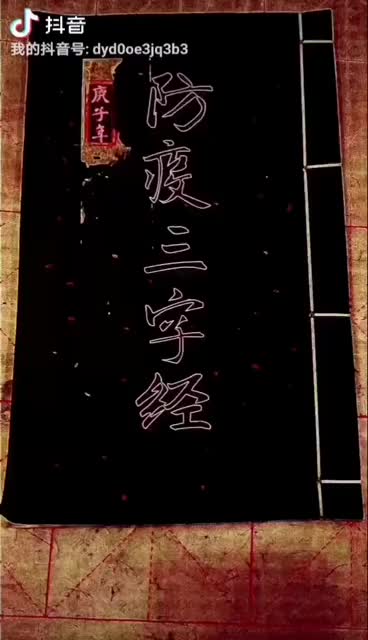 抖音
我的抖音号: dyd0oe3jq3b3
庚子年
防疫三字经